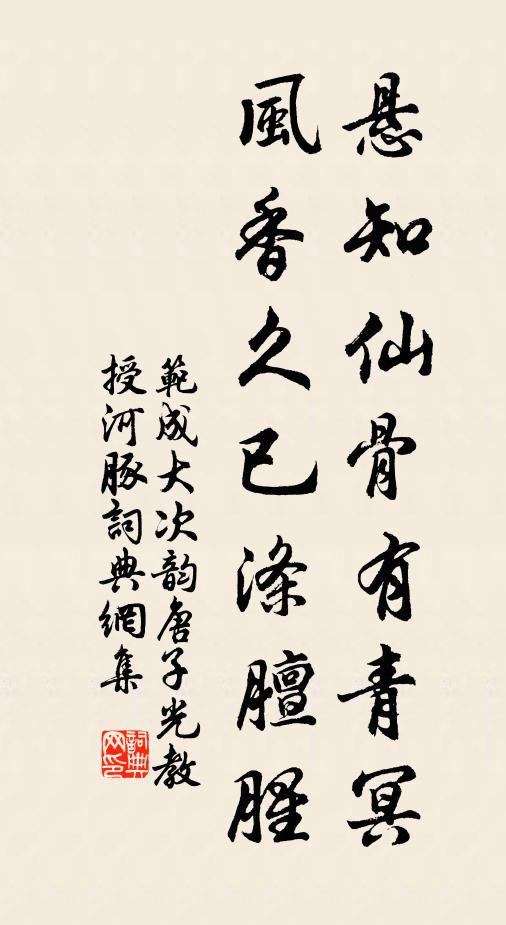 悬知仙骨有青冥
風香久已涤膻腥
範成大次韵唐子光教
授河豚詞典網集
詞典网印